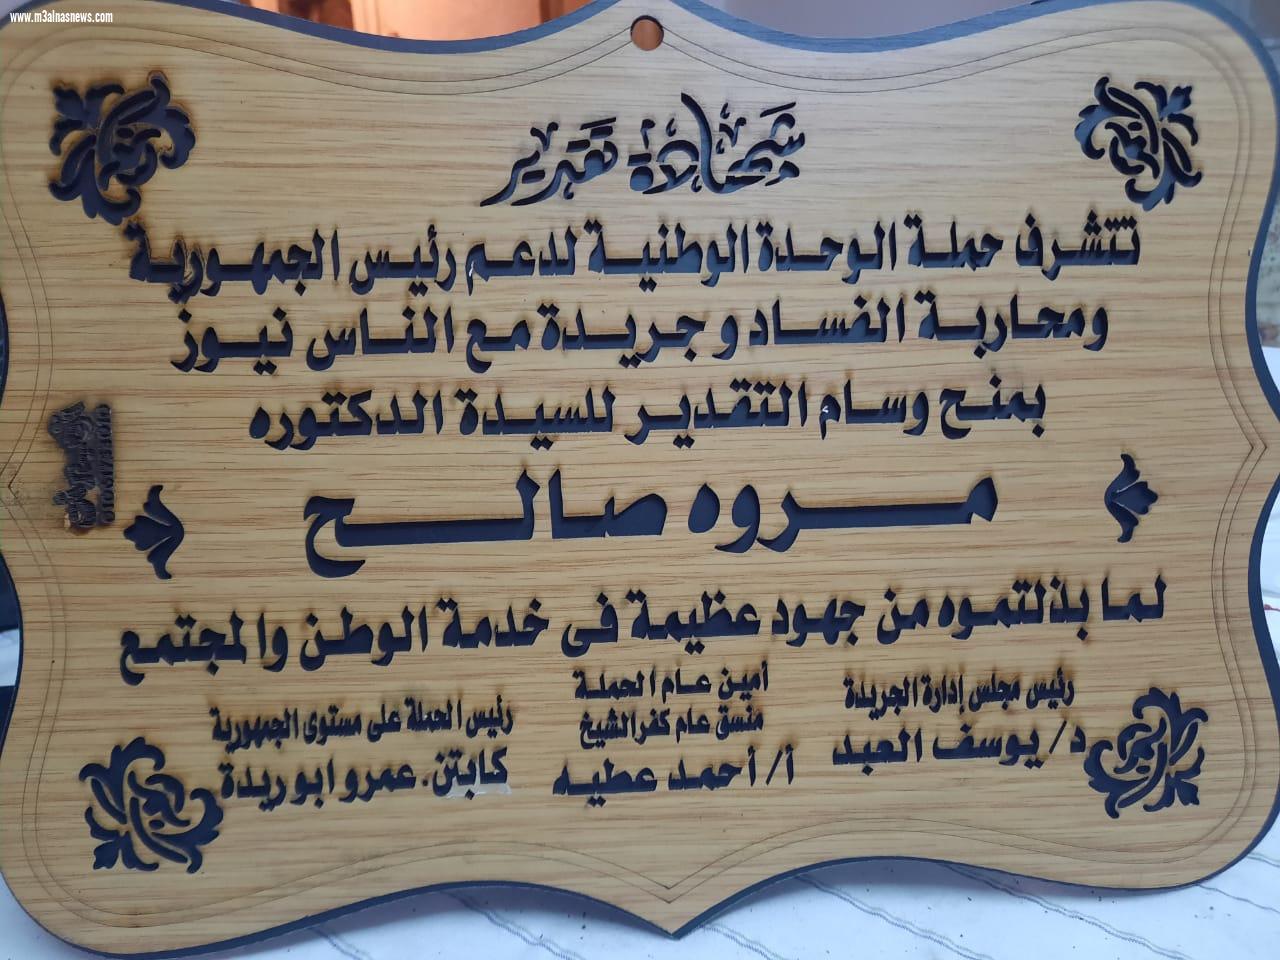 www.m3alnasnews.com
شهادة تقدير
تتشرف حملة الوحدة الوطنية لدعم رئيس الجمهورية
ومحاربة الفساد وجريدة مع الناس نيوز
بمنح وسام التقدير للسيدة الدكتوره
مروه صالح
لما بذلتموه من جهود عظيمة فى خدمة الوطن والمجتمع
رئيس مجلس إدارة الجريدة
د/ يوسف العبد
أمين عام الحملة
منسق عام كفر الشيخ
أ/ أحمد عطيه
رئيس الحملة على مستوى الجمهورية
كابتن. عمرو ابو ريدة